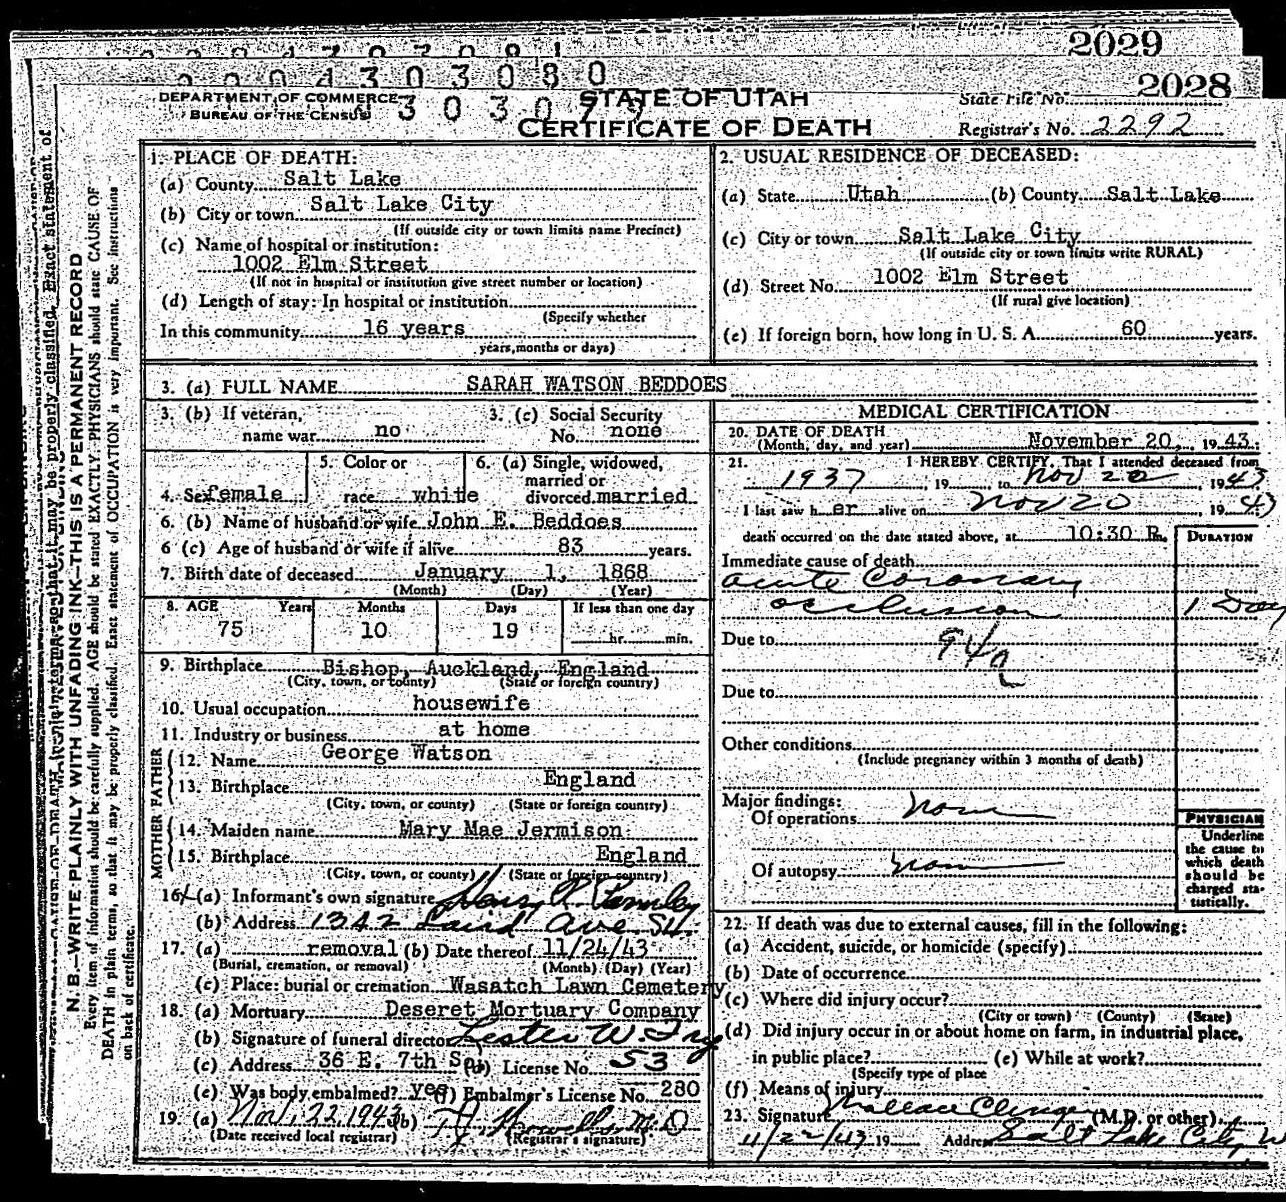 2029
2028
0 0 0 4 3 0 3 0 8 0
DEPARTMENT OF COMMERCE
BUREAU OF THE CENSUS
STATE OF UTAH
CERTIFICATE OF DEATH
State File No.
Registrar's No. 2292
N. B.—WRITE PLAINLY WITH UNFADING INK—THIS IS A PERMANENT RECORD
Every item of information should be carefully supplied. AGE should be stated EXACTLY. PHYSICIANS should state CAUSE OF
DEATH in plain terms, so that it may be properly classified. Exact statement of OCCUPATION is very important. See instructions
on back of certificate.
1. PLACE OF DEATH:
(a) County Salt Lake
(b) City or town Salt Lake City
(If outside city or town limits name Precinct)
(c) Name of hospital or institution:
1002 Elm Street
(If not in hospital or institution give street number or location)
(d) Length of stay: In hospital or institution
(Specify whether
In this community 16 years
years, months or days)
2. USUAL RESIDENCE OF DECEASED:
(a) State Utah (b) County Salt Lake
(c) City or town Salt Lake City
(If outside city or town limits write RURAL)
(d) Street No. 1002 Elm Street
(If rural give location)
(e) If foreign born, how long in U. S. A. 60 years.
3. (a) FULL NAME SARAH WATSON BEDDOES
3. (b) If veteran, name war no
3. (c) Social Security No. none
4. Sex female
5. Color or race white
6. (a) Single, widowed, married or divorced married
6. (b) Name of husband or wife John E. Beddoes
6 (c) Age of husband or wife if alive 83 years.
7. Birth date of deceased January 1, 1868
(Month) (Day) (Year)
8. AGE Years Months Days If less than one day
75 10 19 hr. min.
9. Birthplace Bishop, Auckland, England
(City, town, or county) (State or foreign country)
10. Usual occupation housewife
11. Industry or business at home
FATHER
12. Name George Watson
13. Birthplace England
(City, town, or county) (State or foreign country)
MOTHER
14. Maiden name Mary Mae Jermison
15. Birthplace England
(City, town, or county) (State or foreign country)
16. (a) Informant's own signature
(b) Address 1342 Laird Ave SL.
17. (a) removal (b) Date thereof 11/24/43
(Burial, cremation, or removal) (Month) (Day) (Year)
(c) Place: burial or cremation Wasatch Lawn Cemetery
18. (a) Mortuary Deseret Mortuary Company
(b) Signature of funeral director Lester W
(c) Address 36 E. 7th So. (d) License No. 53
(e) Was body embalmed? yes (f) Embalmer's License No. 280
19. (a) Nov. 22, 1943 (b) M.D
(Date received local registrar) (Registrar's signature)
MEDICAL CERTIFICATION
20. DATE OF DEATH
(Month, day, and year) November 20, 1943.
21. I HEREBY CERTIFY, That I attended deceased from
1937, 19 to Nov 20, 1943
I last saw her alive on Nov 20 1943
death occurred on the date stated above, at 10:30 P.m.
DURATION
Immediate cause of death
acute Coronary
occlusion 1 Day
Due to 94a
Due to
Other conditions
(Include pregnancy within 3 months of death)
Major findings:
Of operations none
Of autopsy none
PHYSICIAN
Underline
the cause to
which death
should be
charged sta-
tistically.
22. If death was due to external causes, fill in the following:
(a) Accident, suicide, or homicide (specify)
(b) Date of occurrence
(c) Where did injury occur?
(City or town) (County) (State)
(d) Did injury occur in or about home on farm, in industrial place,
in public place? (e) While at work?
(Specify type of place
(f) Means of injury
23. Signature Wallace (M.D. or other)
11/22/43 19 Address Salt Lake City, U